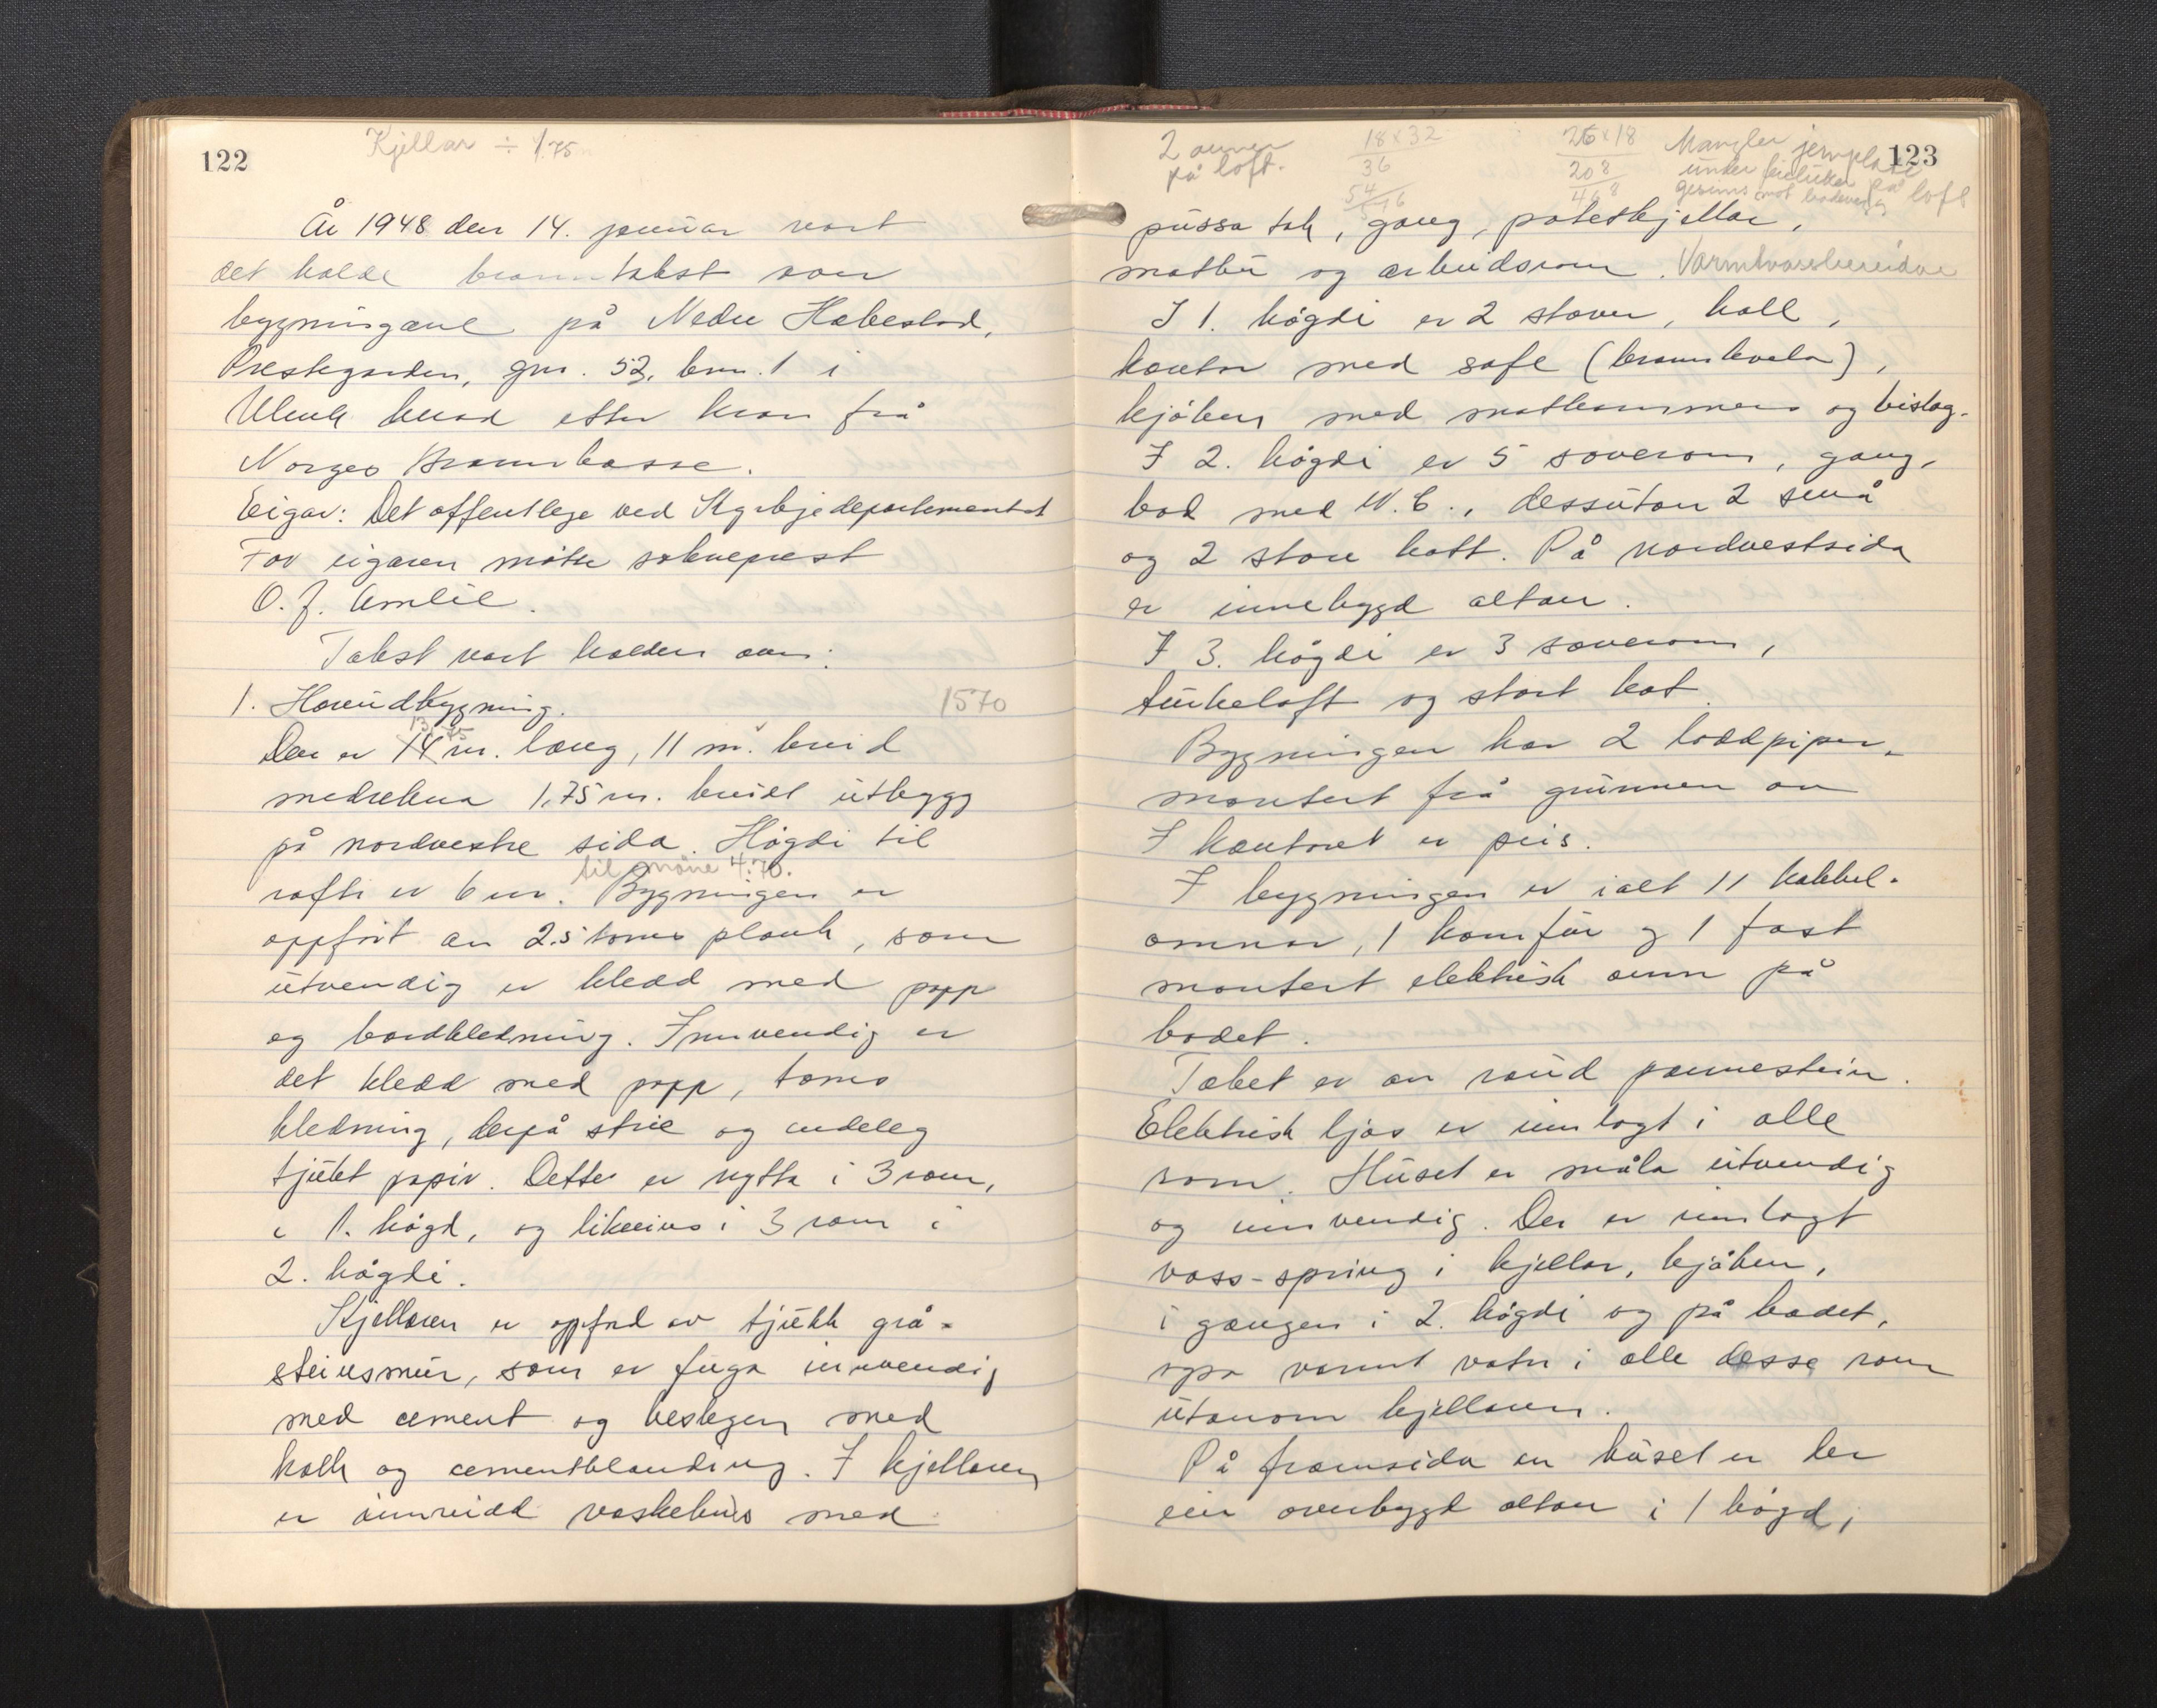 122
Kjellar ÷ 1.75 m
År 1948 den 14. januar vart
det halde branntakst over
bygningane på Nedre Habestad,
Prestegarden, gnr. 52, bnr. 1 i
herad etter krav frå
Norges Brannkasse.
Eigar: Det offentlege ved Kyrkjedepartementet
For eigaren møtte sokneprest
O. J. Amlie.
Takst vart halden over:
1. Hovudbygning. 1570
13,75
Den er 14 m. lang, 11 m. breid
medrekna 1,75 m. breidt utbygg
på nordvestre side. Høgdi til
til møne 4.70.
rafti er 6 m. Bygningen er
oppført av 2.5 toms plank, som
utvendig er kledd med papp
og bordkledning. Innvendig er
det kledd med papp, toms
kledning, derpå strie og endeleg
tjukt papir. Dette er nytta i 3 rom,
i 1. høgd, og likeeins i 3 rom i
2. høgdi.
Kjellaren er oppførd av tjukk grå-
steinsmur, som er fuga innvendig
med cement og beslegen med
kalk og cementblanding. I kjellaren
er innreidd vaskehus med
123
2 omner
på loft.
18 x 32
36
54
576
26 x 18
208
468
Mangler jernplate
under feieluker på loft
gesims mot
pussa tak, gang, poteskjellar,
matbu og arbeidsrom. Varmtvassbereidar
I 1. høgdi er 2 stover, hall,
kontor med safe (brannkvelv),
kjøken med matkammers og bislag.
I 2. høgdi er 5 soverom, gang,
bad med W.C., dessutan 2 små
og 2 store kott. På nordvestsida
er innebygd altan.
I 3. høgdi er 3 soverom,
turkeloft og stort kot.
Bygningen har 2 loddpiper
montert frå grunnen av
I kontoret er peis.
I bygningen er ialt 11 kakkel-
omnar, 1 komfür og 1 fast
montert elektrisk omn på
badet.
Taket er av raud pannestein.
Elektrisk ljos er innlagt i alle
rom. Huset er måla utvendig
og innvendig. Der er innlagt
vass-spring i kjellar, kjøken,
i gangen i 2. høgdi og på badet,
ogso varmt vatn i alle desse rom
utanom kjellaren.
På framsida av huset er der
ein overbygd altan i 1 høgd,